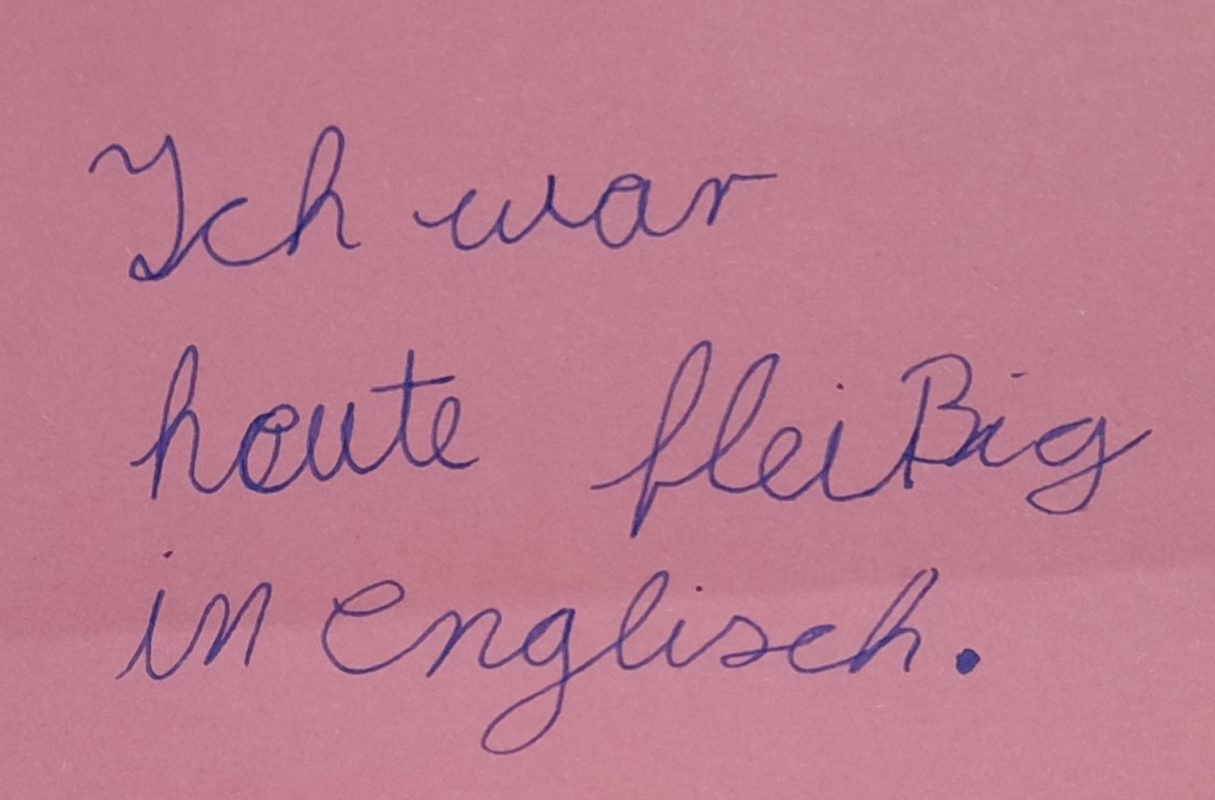 Ich war
heute fleißig
in englisch.